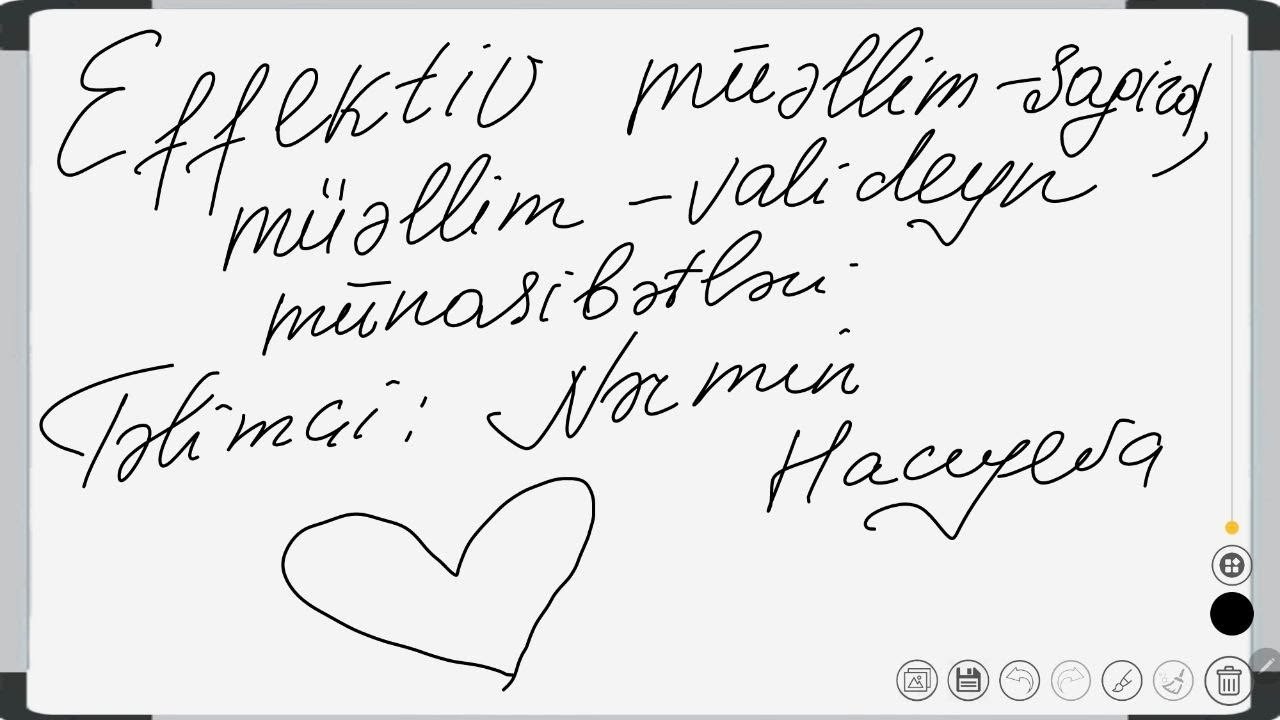 Effektiv müəllim-şagird,
müəllim-valideyn
münasibətləri
Təlimçi: Nərmin
Hacıyeva